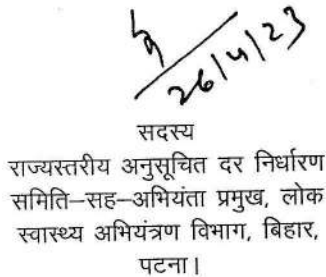 26/4/23
सदस्य
राज्यस्तरीय अनुसूचित दर निर्धारण
समिति–सह–अभियंता प्रमुख, लोक
स्वास्थ्य अभियंत्रण विभाग, बिहार,
पटना।